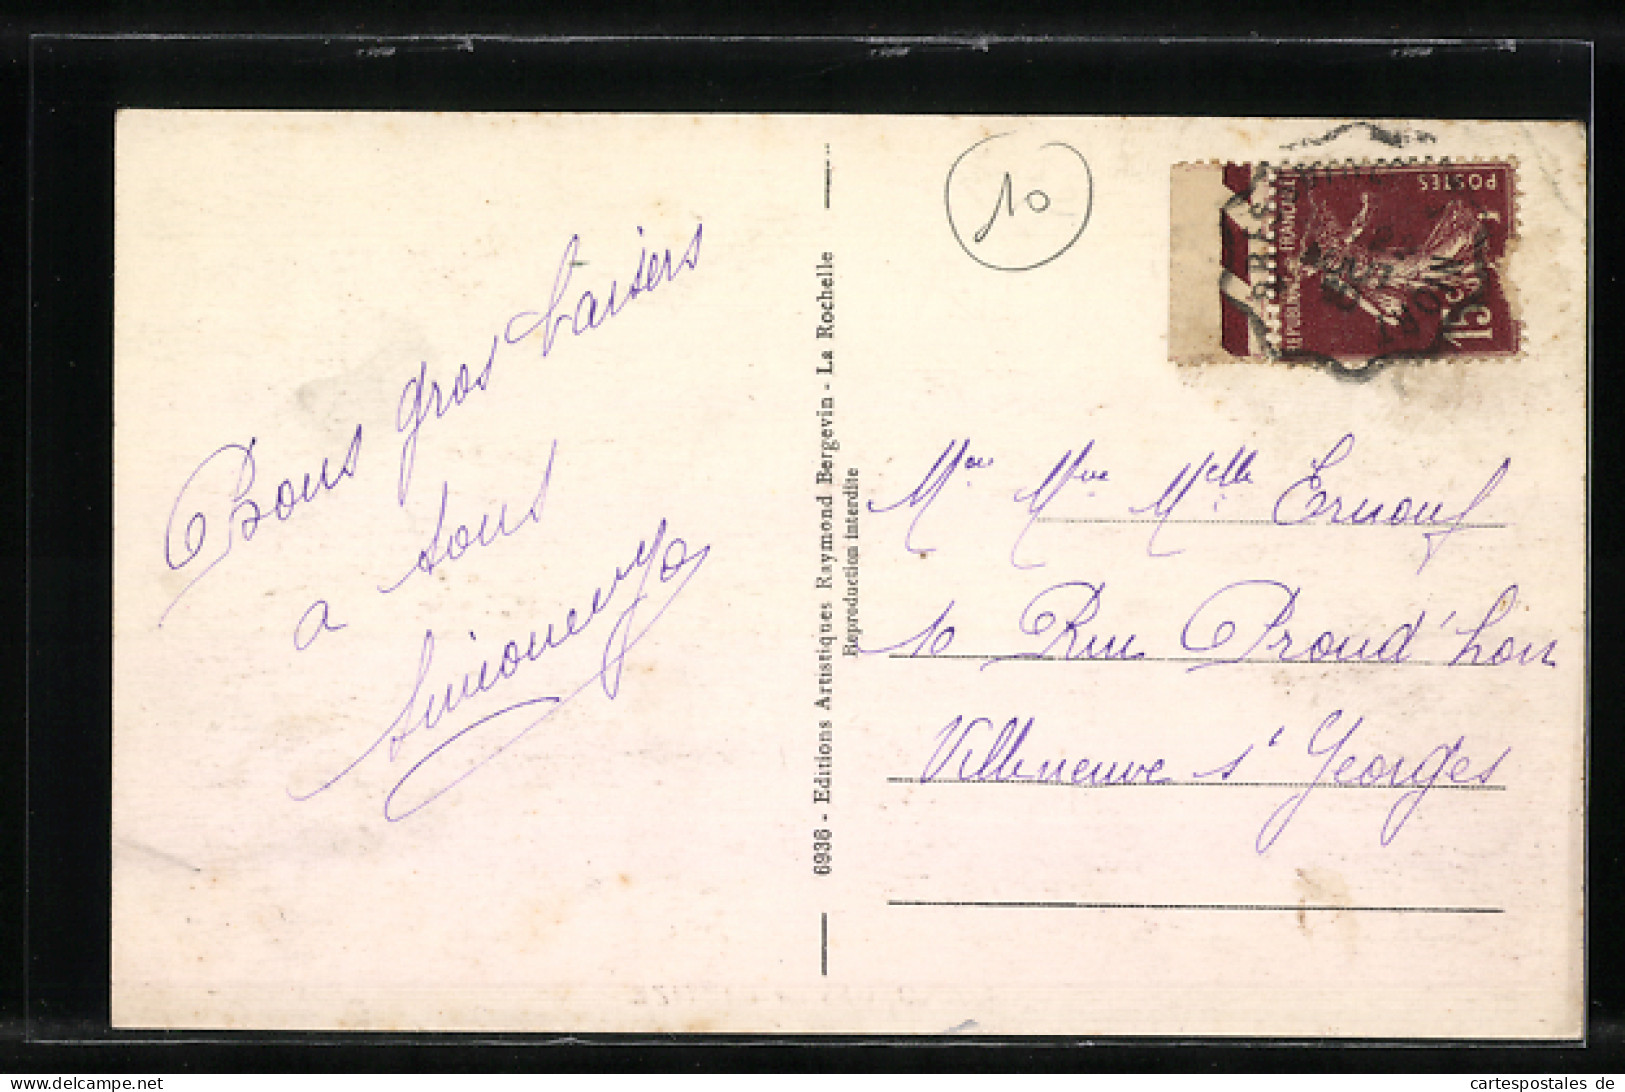 10
POSTES
REPUBLIQUE FRANÇAISE
15c
Bons gros baisers
a tous
6936 - Editions Artistiques Raymond Bergevin - La Rochelle
Reproduction interdite
Mr Mme Melle Ernouf
10 Rue Proud'hon
Villeneuve St Georges
cartespostales de